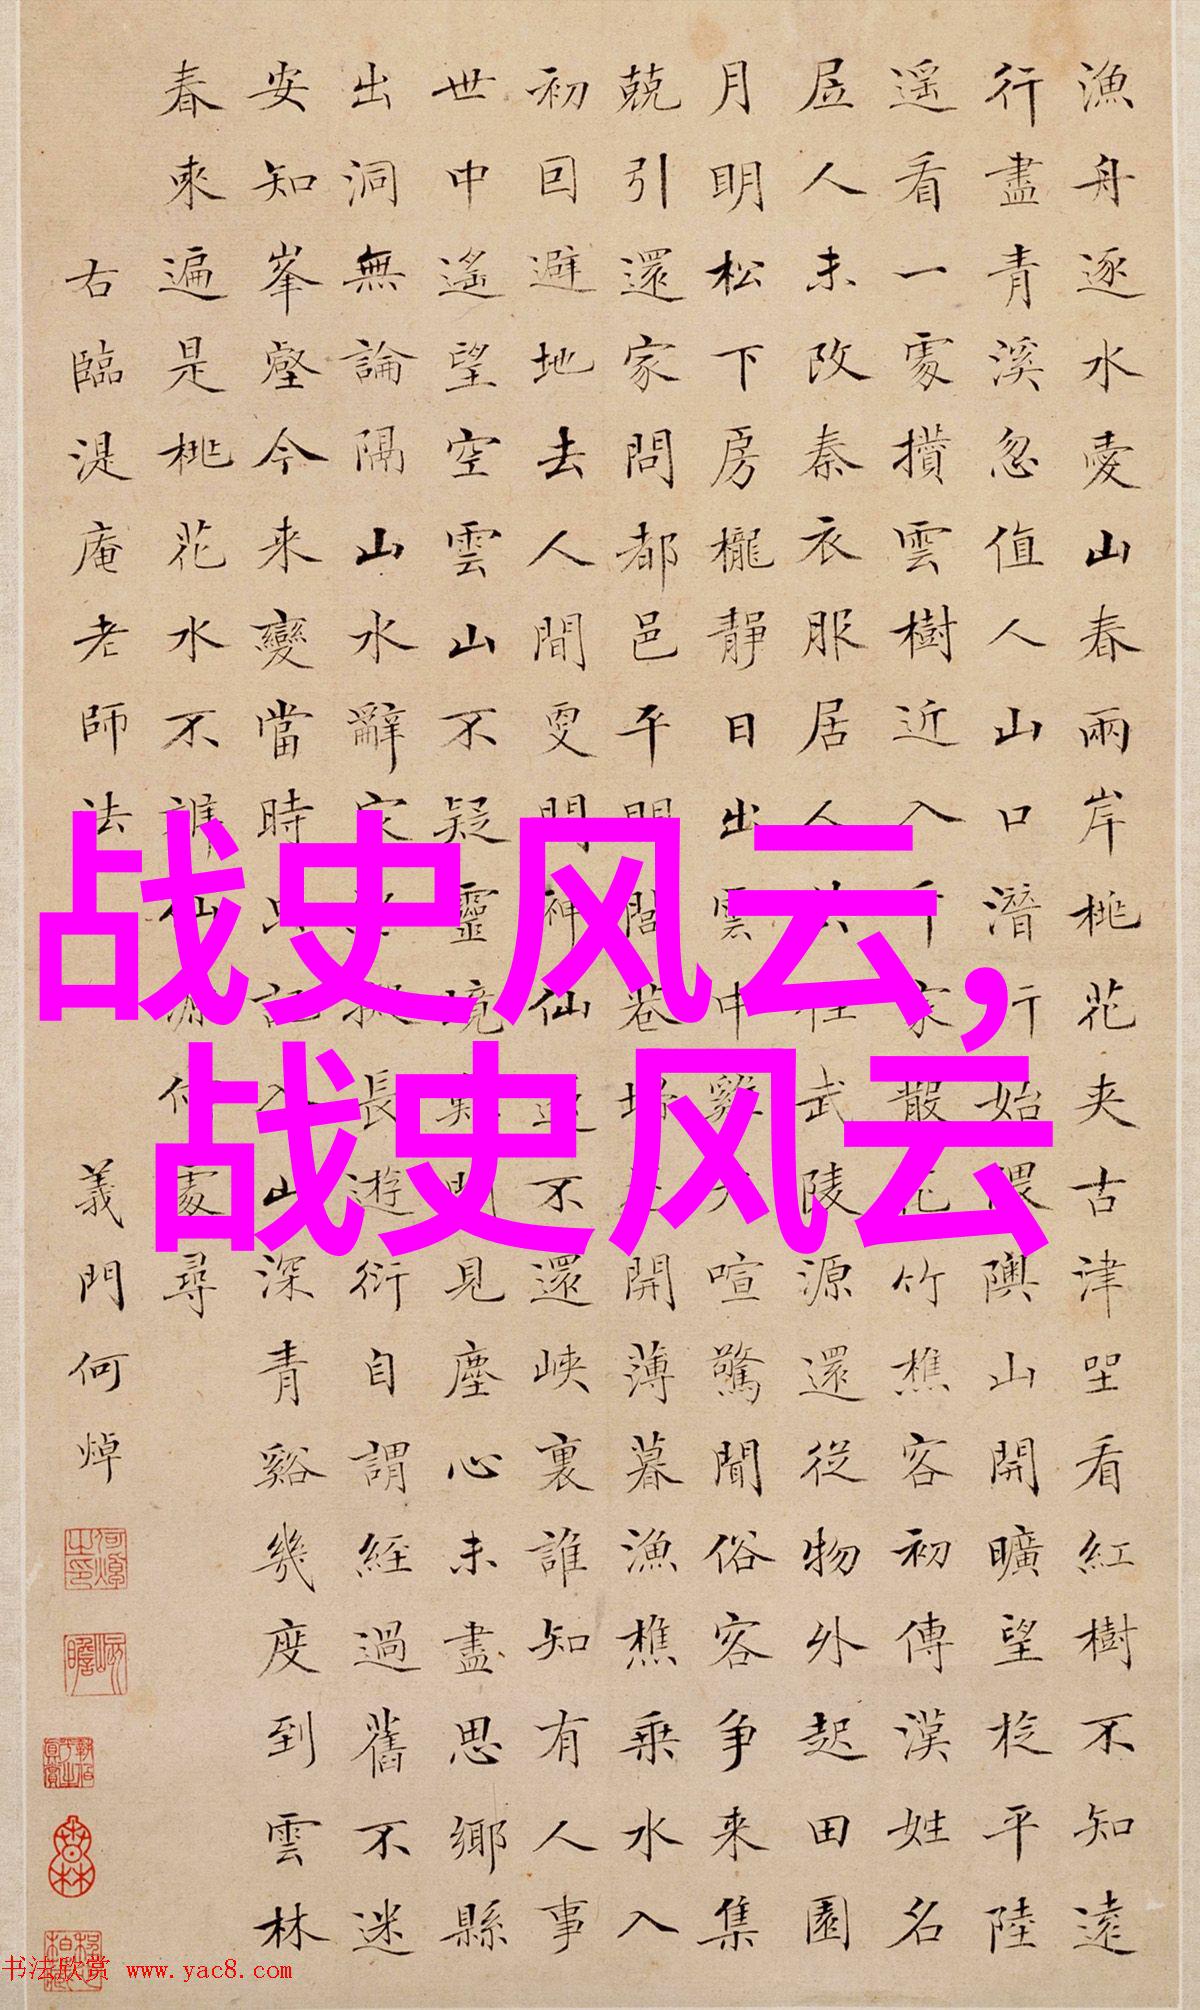 漁舟逐水愛山春兩岸桃花夾古津坐看紅樹不知遠
行盡青溪忽值人山口潛行始隈隩山開曠望旋平陸
遥看一處攢雲樹近入千家散花竹樵客初傳漢姓名
居人未改秦衣服居人共住武陵源還從物外起田園
月明松下房櫳靜日出雲中雞犬喧驚聞俗客争来集
兢引還家問都邑平明閭巷掃花開薄暮漁樵乘水入
初回避地去人間更問神仙遂不還峽裏誰知有人事
世中遥望空雲山不疑靈境難聞見塵心未盡思鄉縣
出洞無論隔山水辭家終擬長遊衍自謂經過舊不迷
安知峯壑今来變當時只記入山深青谿幾度到雲林
春來遍是桃花水不辨仙源何處尋
右臨湜庵老師法 義門何焯
战史风云,
战史风云
书法欣赏 www.yac8.com